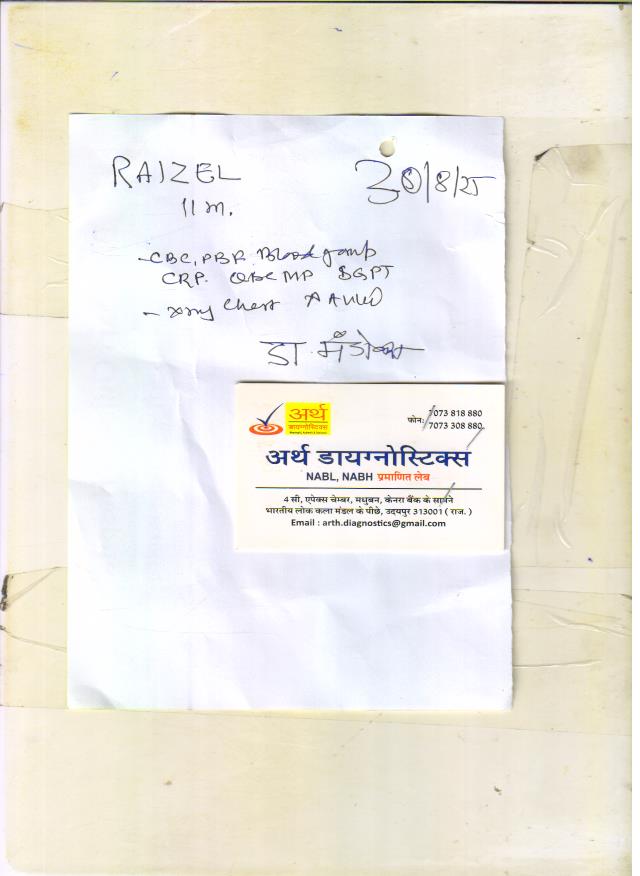 RAIZEL
11 m.
8/8/25
- CBC, PBF. Blood group
CRP. QBC MP SGPT
- Xray Chest
डा.
अर्थ
डायग्नोस्टिक्स
फोन: 7073 818 880
7073 308 880
अर्थ डायग्नोस्टिक्स
NABL, NABH प्रमाणित लेब
4 सी, एपेक्स चेम्बर, मधुबन, केनरा बैंक के सामने
भारतीय लोक कला मंडल के पीछे, उदयपुर 313001 ( राज. )
Email : arth.diagnostics@gmail.com